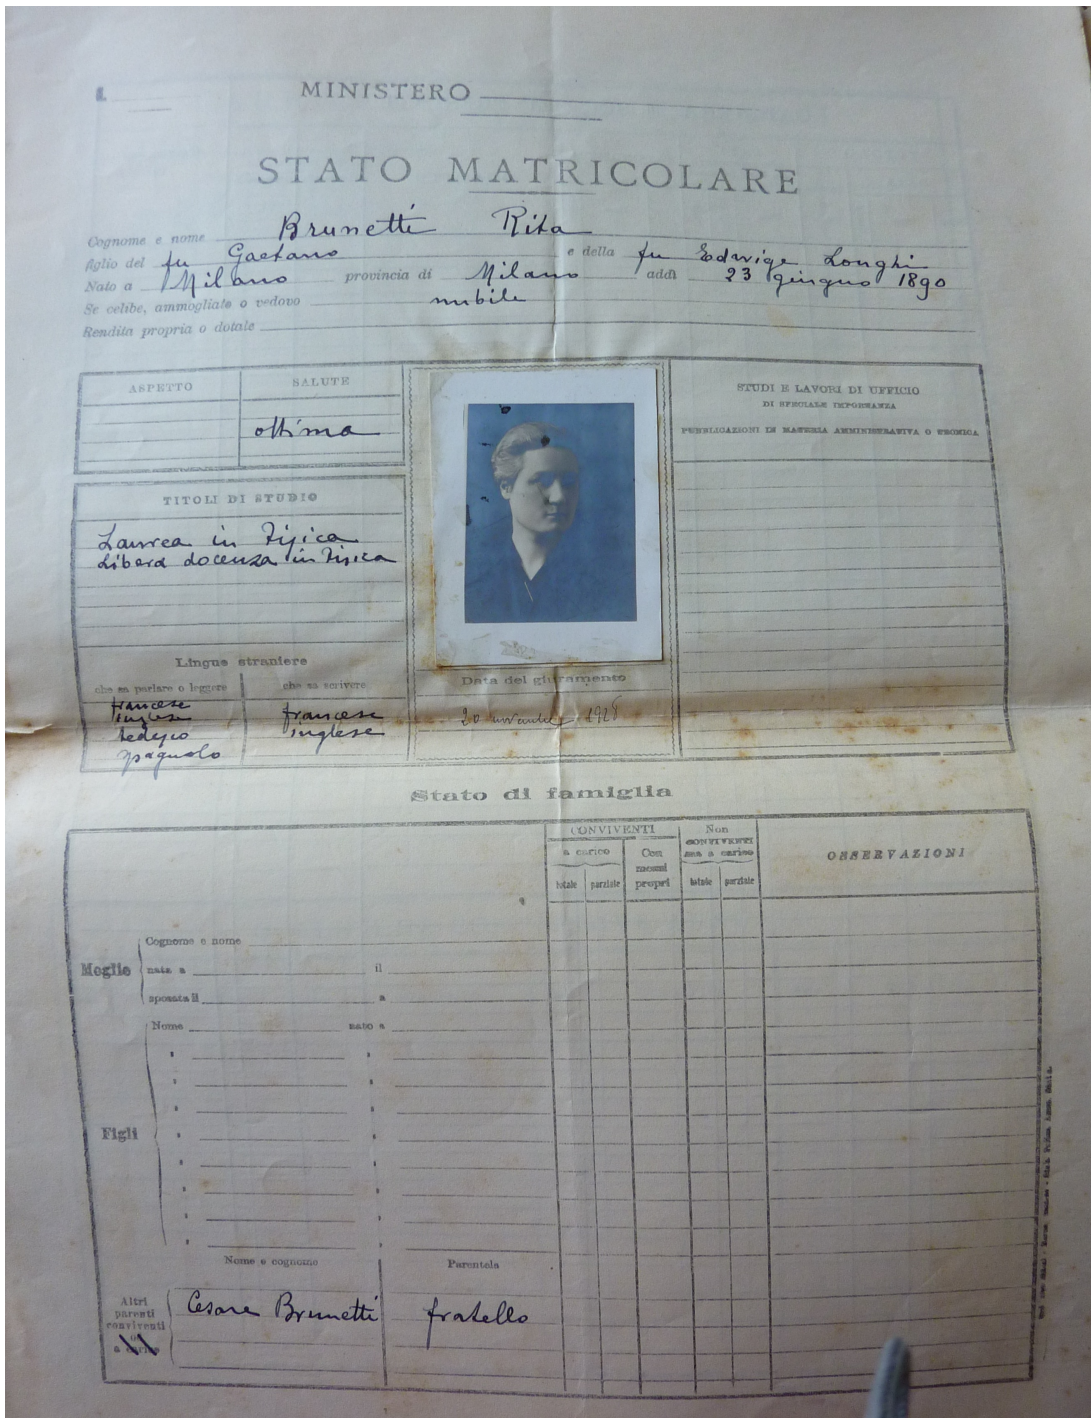 1.
MINISTERO
STATO MATRICOLARE
Cognome e nome Brunetti Rita
figlio del fu Gaetano e della fu Edwige Longhi
Nato a Milano provincia di Milano addì 23 giugno 1890
Se celibe, ammogliato o vedovo nubile
Rendita propria o dotale
ASPETTO
SALUTE
ottima
TITOLI DI STUDIO
Laurea in Fisica
Libera docenza in Fisica
Lingue straniere
che sa parlare o leggere
che sa scrivere
francese
inglese
tedesco
spagnolo
francese
inglese
Data del giuramento
20 novembre 1928
STUDI E LAVORI DI UFFICIO
DI SPECIALE IMPORTANZA
PUBBLICAZIONI IN MATERIA AMMINISTRATIVA O TECNICA
Stato di famiglia
CONVIVENTI
a carico
totale parziale
Con
mezzi
propri
Non
CONVIVENTI
ma a carico
totale parziale
OSSERVAZIONI
Moglie
Cognome e nome
nata a il
sposata il a
Figli
Nome nato a
Nome e cognome
Parentela
Altri
parenti
conviventi
o
a carico
Cesare Brunetti fratello